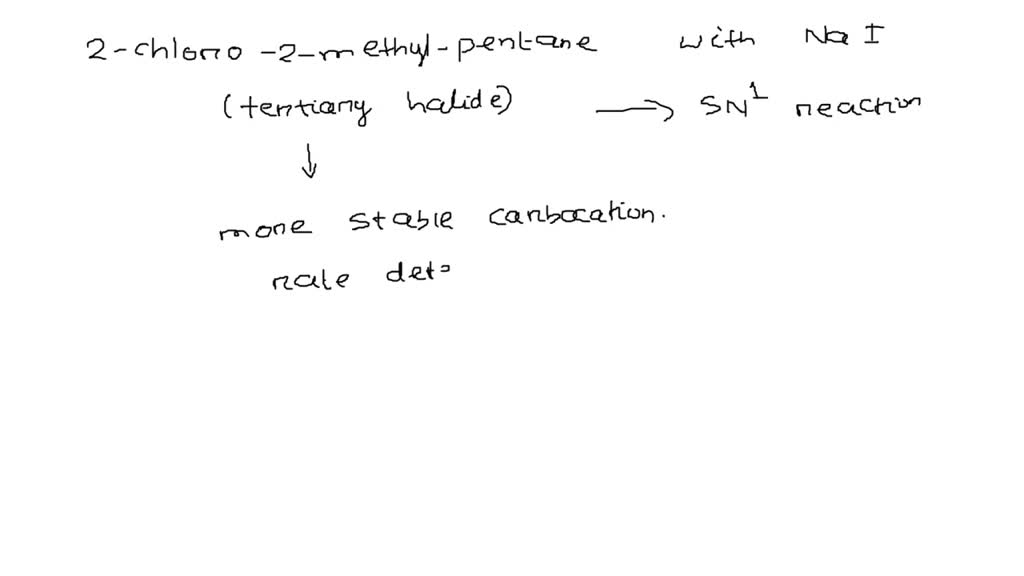 2-chloro-2-methyl-pentane with NaI
(tertiary halide) → SN1 reaction
↓
more stable carbocation.
rate det